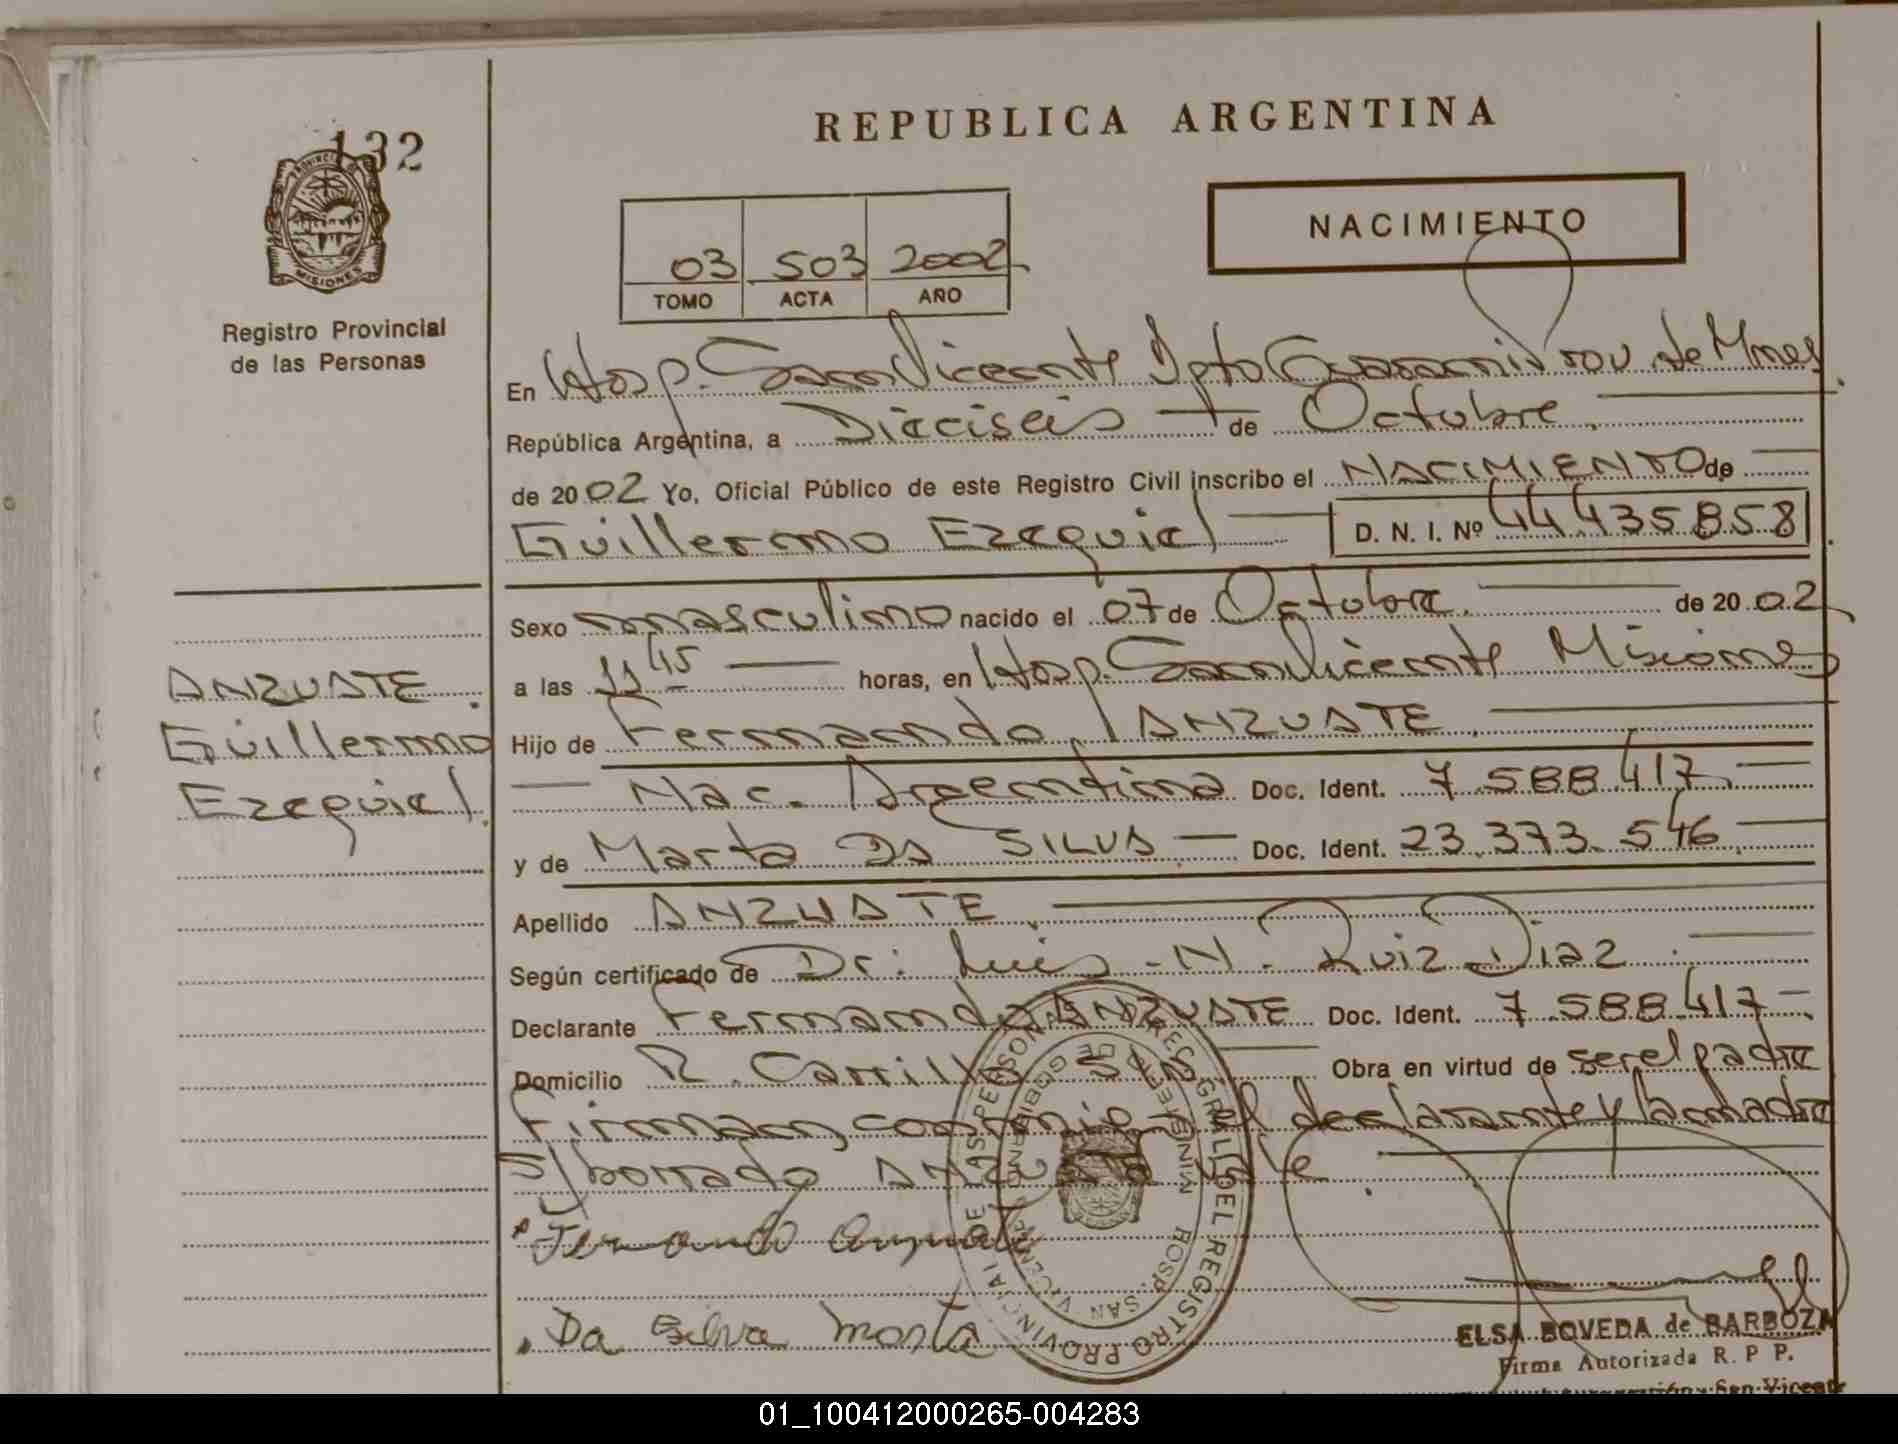 132
REPUBLICA ARGENTINA
NACIMIENTO
03 503 2002
TOMO ACTA AÑO
MISIONES
Registro Provincial
de las Personas
En Hosp. San Vicente Dpto Guaraní Prov. de Mnes
República Argentina, a Dieciseis de Octubre
de 2002 Yo, Oficial Público de este Registro Civil inscribo el NACIMIENTO de
Guillermo Ezequiel D. N. I. Nº 44435858
Sexo masculino nacido el 07 de Octubre. de 2002
a las 11 45 horas, en Hosp. San Vicente Misiones
ANZUATE
Guillermo
Ezequiel.
Hijo de Fernando ANZUATE
Nac. Argentina Doc. Ident. 7.588.417
y de Marta DA SILVA Doc. Ident. 23.373.546
Apellido ANZUATE
Según certificado de Dr. Luis N. Ruiz Diaz
Declarante Fernando ANZUATE Doc. Ident. 7.588.417
Domicilio R. Carrillo S/N Obra en virtud de ser el padre
Firman conmigo el declarante y la madre
S/borrado ANZUATE Vale
Fernando Anzuate
Da Silva Marta
REGISTRO PROVINCIAL DE LAS PERSONAS
MINISTERIO DE GOBIERNO
HOSP. SAN VICENTE
ELSA BOVEDA de BARBOZA
Firma Autorizada R. P P.
San Vicente
01_100412000265-004283